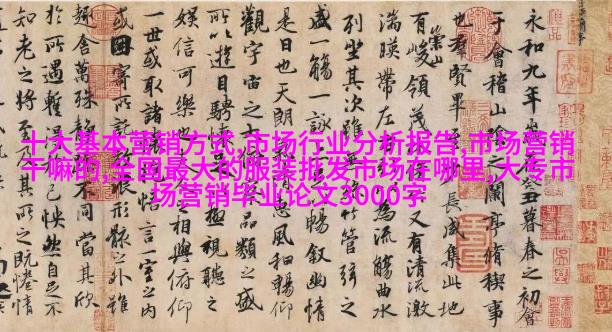 十大基本营销方式,市场行业分析报告,市场营销
干嘛的,全国最大的服装批发市场在哪里,大专市
场营销毕业论文3000字
永和九年癸丑暮春之初會
于會稽山之蘭亭脩稧事
也羣賢畢長咸集此地
有崇山峻領茂又有清流激
湍暎帶左為流觴曲水
列坐其次雖竹管弦之
盛一觴一詠暢敘幽情
是日也天朗惠風和暢仰
觀宇宙之品類之盛
所以遊目騁極視聽之
娛信可樂相與俯仰
一世或取諸悟言一室之內
或因寄所形骸之外雖
趣舍萬殊不同當其欣
於所遇暫己怏然自足不
知老之將至之既惓情